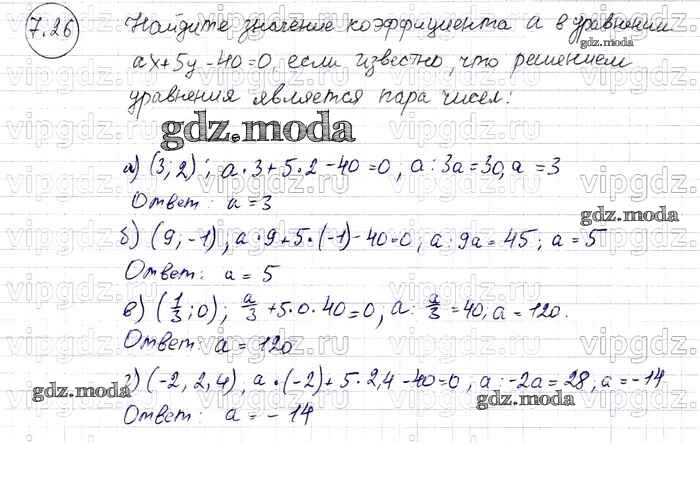 7.26 Найдите значение коэффициента а в уравнении
ax+5y-40=0, если известно, что решением
уравнения является пара чисел:
gdz.moda
а) (3; 2); a·3+5·2-40=0, a: 3a=30, a=3
Ответ: a=3
gdz.moda
б) (9; -1), a·9+5·(-1)-40=0, a: 9a=45; a=5
Ответ: a=5
в) (1/3; 0); a/3+5·0·40=0, a: a/3=40; a=120.
Ответ: a=120
г) (-2, 2,4), a·(-2)+5·2,4-40=0, a: -2a=28, a=-14
gdz.moda
gdz.moda
Ответ: a=-14